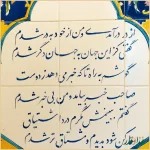 از در درآمدی و من از خود به در شدم
گفتی کز این جهان به جهان دگر شدم
گوشم به راه تا که خبر می دهد ز دوست
صاحب خبر بیامد و من بی خبر شدم
گفتم ببینمش مگرم درد اشتیاق
ساکن شود بدیدم و مشتاق تر شدم